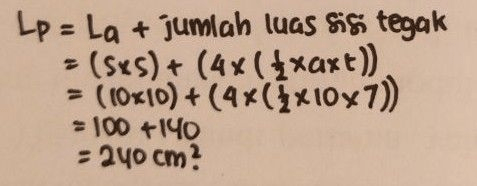 Lp = La + jumlah luas sisi tegak
= (sxs) + (4x(½xaxt))
= (10x10) + (4x(½x10x7))
= 100 + 140
= 240 cm²